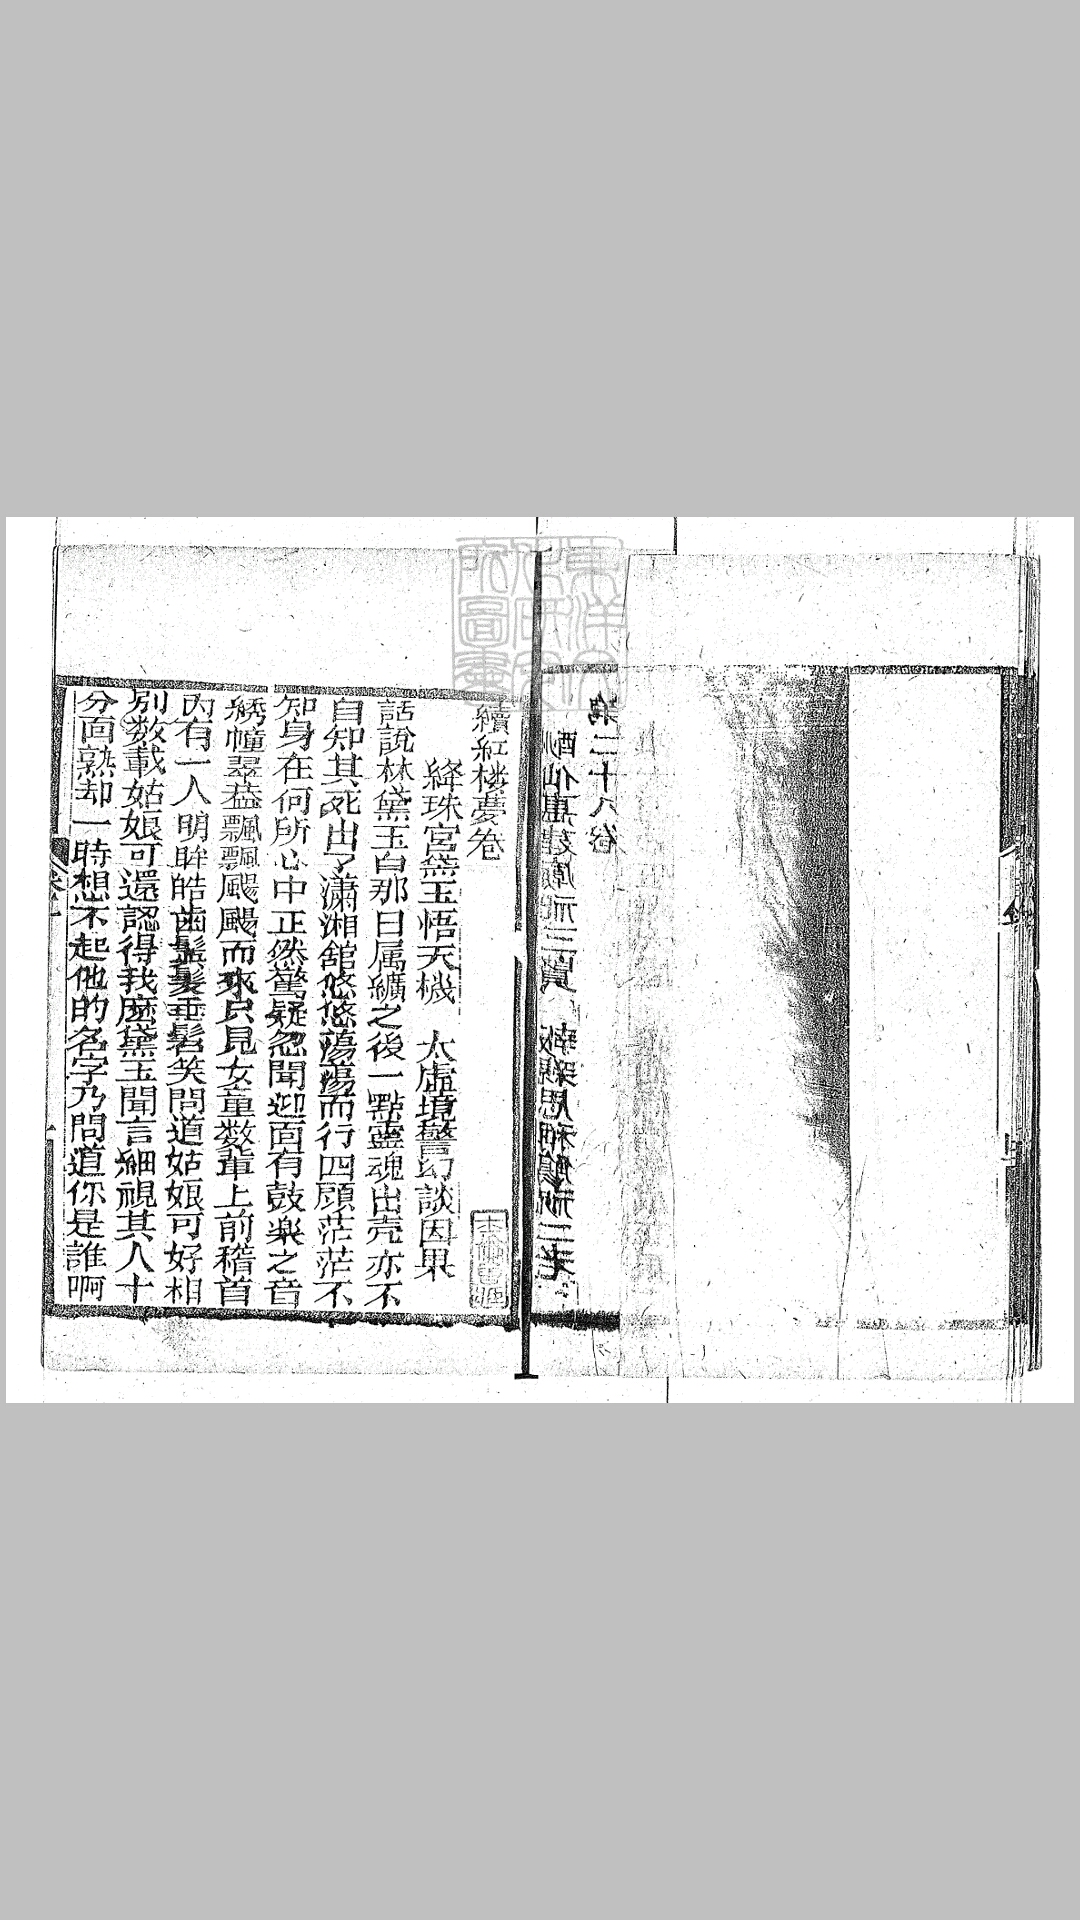 第二十八卷
續紅樓夢卷
絳珠宮黛玉悟天機　太虛境警幻談因果
話說林黛玉自那日属纊之後一點靈魂出壳亦不
自知其死出了瀟湘舘悠悠蕩蕩而行四顧茫茫不
知身在何所心中正然驚疑忽聞迎面有鼓樂之音
綉幢翠葢飄飄颺颺而來只見女童数輩上前稽首
內有一人明眸皓齒鬒髮垂髫笑問道姑娘可好相
别数載姑娘可還認得我麽黛玉聞言細視其人十
分面熟却一時想不起他的名字乃問道你是誰啊